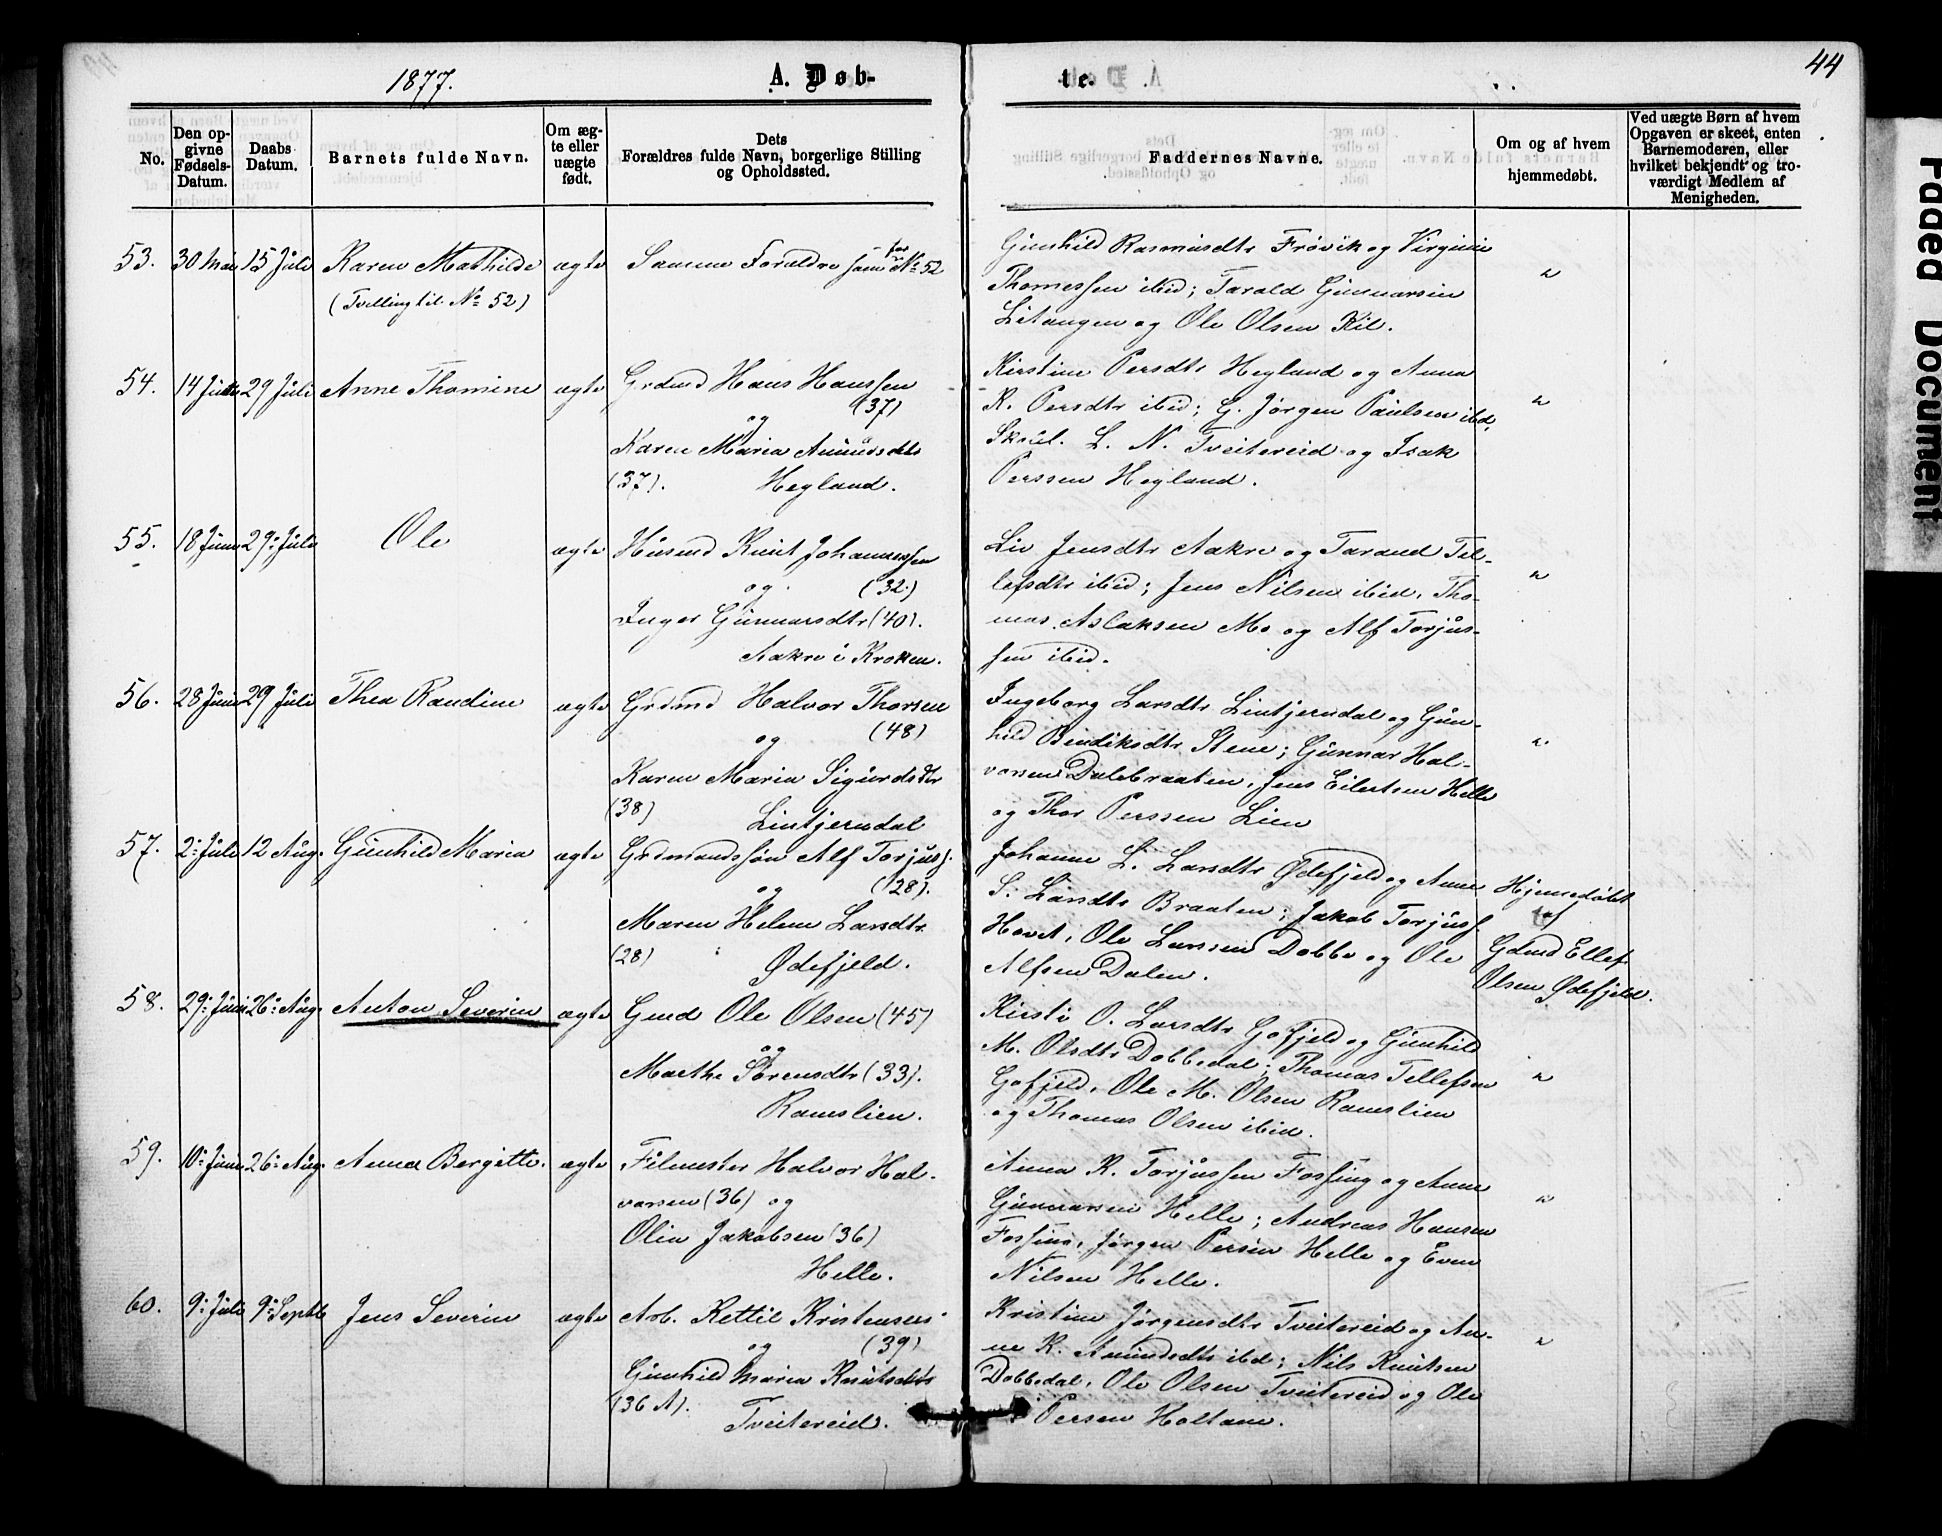 1877.
A. Døb-
te.
44
No.
Den op-
givne
Fødsels-
Datum.
Daabs
Datum.
Barnets fulde Navn.
Om æg-
te eller
uægte
født.
Dets
Forældres fulde Navn, borgerlige Stilling
og Opholdssted.
Faddernes Navne.
Om og af hvem
hjemmedøbt.
Ved uægte Børn af hvem
Opgaven er skeet, enten
Barnemoderen, eller
hvilket bekjendt og tro-
værdigt Medlem af
Menigheden.
53. 30 Mai 15 Juli Karen Mathilde ægte Samme Forældre som for No 52
(Tvilling til No 52)
Gunhild Rasmusdtr Frøvik og Virginie
Thomessen ibid; Tarald Gunnarsen
Litangen og Ole Olsen Kil.
"
54. 14 29 Juli Anne Thomine ægte Grdmd Hans Hanssen
og (37)
Karen Maria Amundsdtr
(37). Hegland.
Kirstine Persdtr Hegland og Anna
K. Persdtr ibid; G. Jørgen Paulsen ibd,
Skoul. L. N. Tveitereid og Isak
Perssen Hegland.
"
55. 18 Juni 29 Juli Ole ægte Husmd Knut Johannessen
og (32)
Inger Gunnarsdtr (40).
Aakre i Kroken.
Liv Jensdtr Aakre og Tarand Tel-
lefsdtr ibid; Jens Nilsen ibid, Tho-
mas Aslaksen Mo og Alf Torjus-
sen ibid.
"
56. 28 Juni 29 Juli Thea Randine ægte Grdmd Halvor Thorsen
og (48)
Karen Maria Sigurdsdtr
(38) Lintjerndal
Ingeborg Larsdtr Lintjerndal og Gun-
hild Bendiksdtr Stene; Gunnar Hal-
vorsen Dalebraaten, Jens Eilertsen Helle
og Thor Perssen Lien
"
57. 2 Juli 12 Aug. Gunhild Maria ægte Grdmandssøn Alf Torjuss.
og (28).
Maren Helene Larsdtr
(28) Ødefjeld.
Johanne L. Larsdtr Ødefjeld og Anne
S. Larsdtr Braaten; Jakob Torjuss.
Hovet, Ole Larssen Dobbe og Ole
Alfsen Dalen.
Hjemmedøbt
af
Gdmd Ellef
Olsen Ødefjeld.
58. 29 Juni 26 Aug. Anton Severin ægte Gmd Ole Olsen (45)
og
Marthe Sørensdtr (33).
Ramslien.
Kirsti O. Larsdtr Gofjeld og Gunhild
M. Olsdtr Dobbedal; Thomas Tellefsen
Gofjeld, Ole M. Olsen Ramslien
og Thomas Olsen ibid.
"
59. 10 Juni 26 Aug. Anna Bergitte. ægte Filmester Halvor Hal-
vorsen (36) og
Olin Jakobsen (36)
Helle.
Anna K. Torjussen Fossing og Anne
Gunnarsen Helle; Andreas Hansen
Fossing, Jørgen Persen Helle og Even
Nilsen Helle.
"
60. 9 Juli 9 Septb Jens Severin ægte Arb. Kettil Kristensen
og (39)
Gunhild Maria Knutsdtr
(36 A). Tveitereid.
Kristine Jørgensdtr Tveitereid og An-
ne K. Amundsdtr ibd; Nils Knutsen
Dobbedal, Ole Olsen Tveitereid og Ole
Persen Holtane.
"
Faded Document